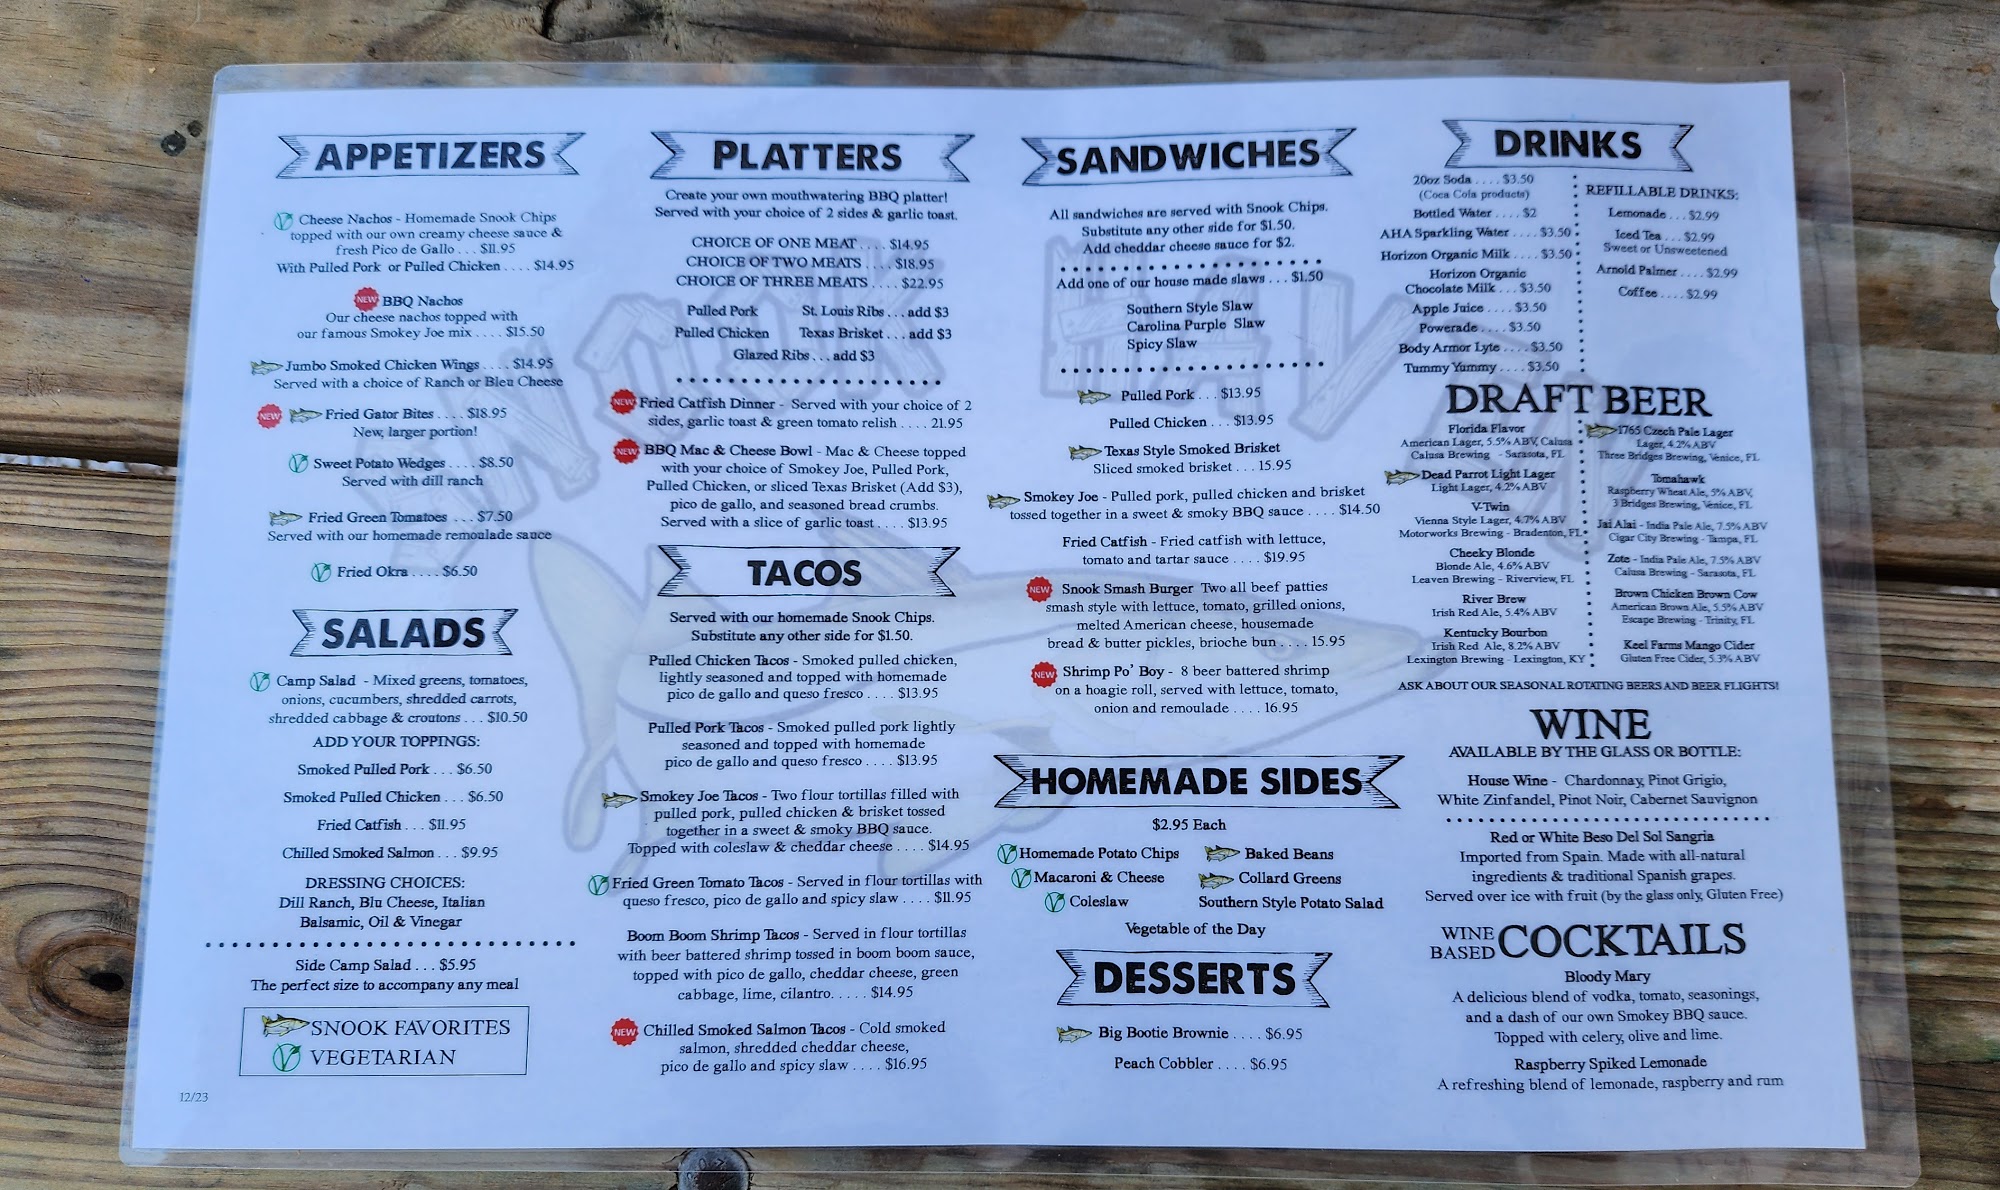 APPETIZERS
Cheese Nachos - Homemade Snook Chips
topped with our own creamy cheese sauce &
fresh Pico de Gallo . . . $11.95
With Pulled Pork or Pulled Chicken . . . . $14.95
NEW BBQ Nachos
Our cheese nachos topped with
our famous Smokey Joe mix . . . . $15.50
Jumbo Smoked Chicken Wings . . . . $14.95
Served with a choice of Ranch or Bleu Cheese
NEW Fried Gator Bites . . . . $18.95
New, larger portion!
Sweet Potato Wedges . . . . $8.50
Served with dill ranch
Fried Green Tomatoes . . . $7.50
Served with our homemade remoulade sauce
Fried Okra . . . . $6.50
SALADS
Camp Salad - Mixed greens, tomatoes,
onions, cucumbers, shredded carrots,
shredded cabbage & croutons . . . $10.50
ADD YOUR TOPPINGS:
Smoked Pulled Pork . . . $6.50
Smoked Pulled Chicken . . . $6.50
Fried Catfish . . . $11.95
Chilled Smoked Salmon . . . $9.95
DRESSING CHOICES:
Dill Ranch, Blu Cheese, Italian
Balsamic, Oil & Vinegar
Side Camp Salad . . . $5.95
The perfect size to accompany any meal
SNOOK FAVORITES
VEGETARIAN
12/23
PLATTERS
Create your own mouthwatering BBQ platter!
Served with your choice of 2 sides & garlic toast.
CHOICE OF ONE MEAT . . . . $14.95
CHOICE OF TWO MEATS . . . . $18.95
CHOICE OF THREE MEATS . . . . $22.95
Pulled Pork St. Louis Ribs . . . add $3
Pulled Chicken Texas Brisket . . . add $3
Glazed Ribs . . . add $3
NEW Fried Catfish Dinner - Served with your choice of 2
sides, garlic toast & green tomato relish . . . . 21.95
NEW BBQ Mac & Cheese Bowl - Mac & Cheese topped
with your choice of Smokey Joe, Pulled Pork,
Pulled Chicken, or sliced Texas Brisket (Add $3),
pico de gallo, and seasoned bread crumbs.
Served with a slice of garlic toast . . . . $13.95
TACOS
Served with our homemade Snook Chips.
Substitute any other side for $1.50.
Pulled Chicken Tacos - Smoked pulled chicken,
lightly seasoned and topped with homemade
pico de gallo and queso fresco . . . . $13.95
Pulled Pork Tacos - Smoked pulled pork lightly
seasoned and topped with homemade
pico de gallo and queso fresco . . . . $13.95
Smokey Joe Tacos - Two flour tortillas filled with
pulled pork, pulled chicken & brisket tossed
together in a sweet & smoky BBQ sauce.
Topped with coleslaw & cheddar cheese . . . . $14.95
Fried Green Tomato Tacos - Served in flour tortillas with
queso fresco, pico de gallo and spicy slaw . . . . $11.95
Boom Boom Shrimp Tacos - Served in flour tortillas
with beer battered shrimp tossed in boom boom sauce,
topped with pico de gallo, cheddar cheese, green
cabbage, lime, cilantro. . . . . $14.95
NEW Chilled Smoked Salmon Tacos - Cold smoked
salmon, shredded cheddar cheese,
pico de gallo and spicy slaw . . . . $16.95
SANDWICHES
All sandwiches are served with Snook Chips.
Substitute any other side for $1.50.
Add cheddar cheese sauce for $2.
Add one of our house made slaws . . . . $1.50
Southern Style Slaw
Carolina Purple Slaw
Spicy Slaw
Pulled Pork . . . $13.95
Pulled Chicken . . . $13.95
Texas Style Smoked Brisket
Sliced smoked brisket . . . 15.95
Smokey Joe - Pulled pork, pulled chicken and brisket
tossed together in a sweet & smoky BBQ sauce . . . . $14.50
Fried Catfish - Fried catfish with lettuce,
tomato and tartar sauce . . . . $19.95
NEW Snook Smash Burger Two all beef patties
smash style with lettuce, tomato, grilled onions,
melted American cheese, housemade
bread & butter pickles, brioche bun . . . . 15.95
NEW Shrimp Po' Boy - 8 beer battered shrimp
on a hoagie roll, served with lettuce, tomato,
onion and remoulade . . . . 16.95
HOMEMADE SIDES
$2.95 Each
Homemade Potato Chips Baked Beans
Macaroni & Cheese Collard Greens
Coleslaw Southern Style Potato Salad
Vegetable of the Day
DESSERTS
Big Bootie Brownie . . . . $6.95
Peach Cobbler . . . . $6.95
DRINKS
20oz Soda . . . . $3.50
(Coca Cola products)
Bottled Water . . . . $2
AHA Sparkling Water . . . . $3.50
Horizon Organic Milk . . . . $3.50
Horizon Organic
Chocolate Milk . . . $3.50
Apple Juice . . . . $3.50
Powerade . . . . $3.50
Body Armor Lyte . . . . $3.50
Tummy Yummy . . . . $3.50
REFILLABLE DRINKS:
Lemonade . . . $2.99
Iced Tea . . . $2.99
Sweet or Unsweetened
Arnold Palmer . . . . $2.99
Coffee . . . . $2.99
DRAFT BEER
Florida Flavor
American Lager, 5.5% ABV, Calusa
Calusa Brewing - Sarasota, FL
Dead Parrot Light Lager
Light Lager, 4.2% ABV
V-Twin
Vienna Style Lager, 4.7% ABV
Motorworks Brewing - Bradenton, FL
Cheeky Blonde
Blonde Ale, 4.6% ABV
Leaven Brewing - Riverview, FL
River Brew
Irish Red Ale, 5.4% ABV
Kentucky Bourbon
Irish Red Ale, 8.2% ABV
Lexington Brewing - Lexington, KY
1765 Czech Pale Lager
Lager, 4.2% ABV
Three Bridges Brewing, Venice, FL
Tomahawk
Raspberry Wheat Ale, 5% ABV,
3 Bridges Brewing, Venice, FL
Jai Alai - India Pale Ale, 7.5% ABV
Cigar City Brewing - Tampa, FL
Zote - India Pale Ale, 7.5% ABV
Calusa Brewing - Sarasota, FL
Brown Chicken Brown Cow
American Brown Ale, 5.5% ABV
Escape Brewing - Trinity, FL
Keel Farms Mango Cider
Gluten Free Cider, 5.3% ABV
ASK ABOUT OUR SEASONAL ROTATING BEERS AND BEER FLIGHTS!
WINE
AVAILABLE BY THE GLASS OR BOTTLE:
House Wine - Chardonnay, Pinot Grigio,
White Zinfandel, Pinot Noir, Cabernet Sauvignon
Red or White Beso Del Sol Sangria
Imported from Spain. Made with all-natural
ingredients & traditional Spanish grapes.
Served over ice with fruit (by the glass only, Gluten Free)
WINE BASED COCKTAILS
Bloody Mary
A delicious blend of vodka, tomato, seasonings,
and a dash of our own Smokey BBQ sauce.
Topped with celery, olive and lime.
Raspberry Spiked Lemonade
A refreshing blend of lemonade, raspberry and rum